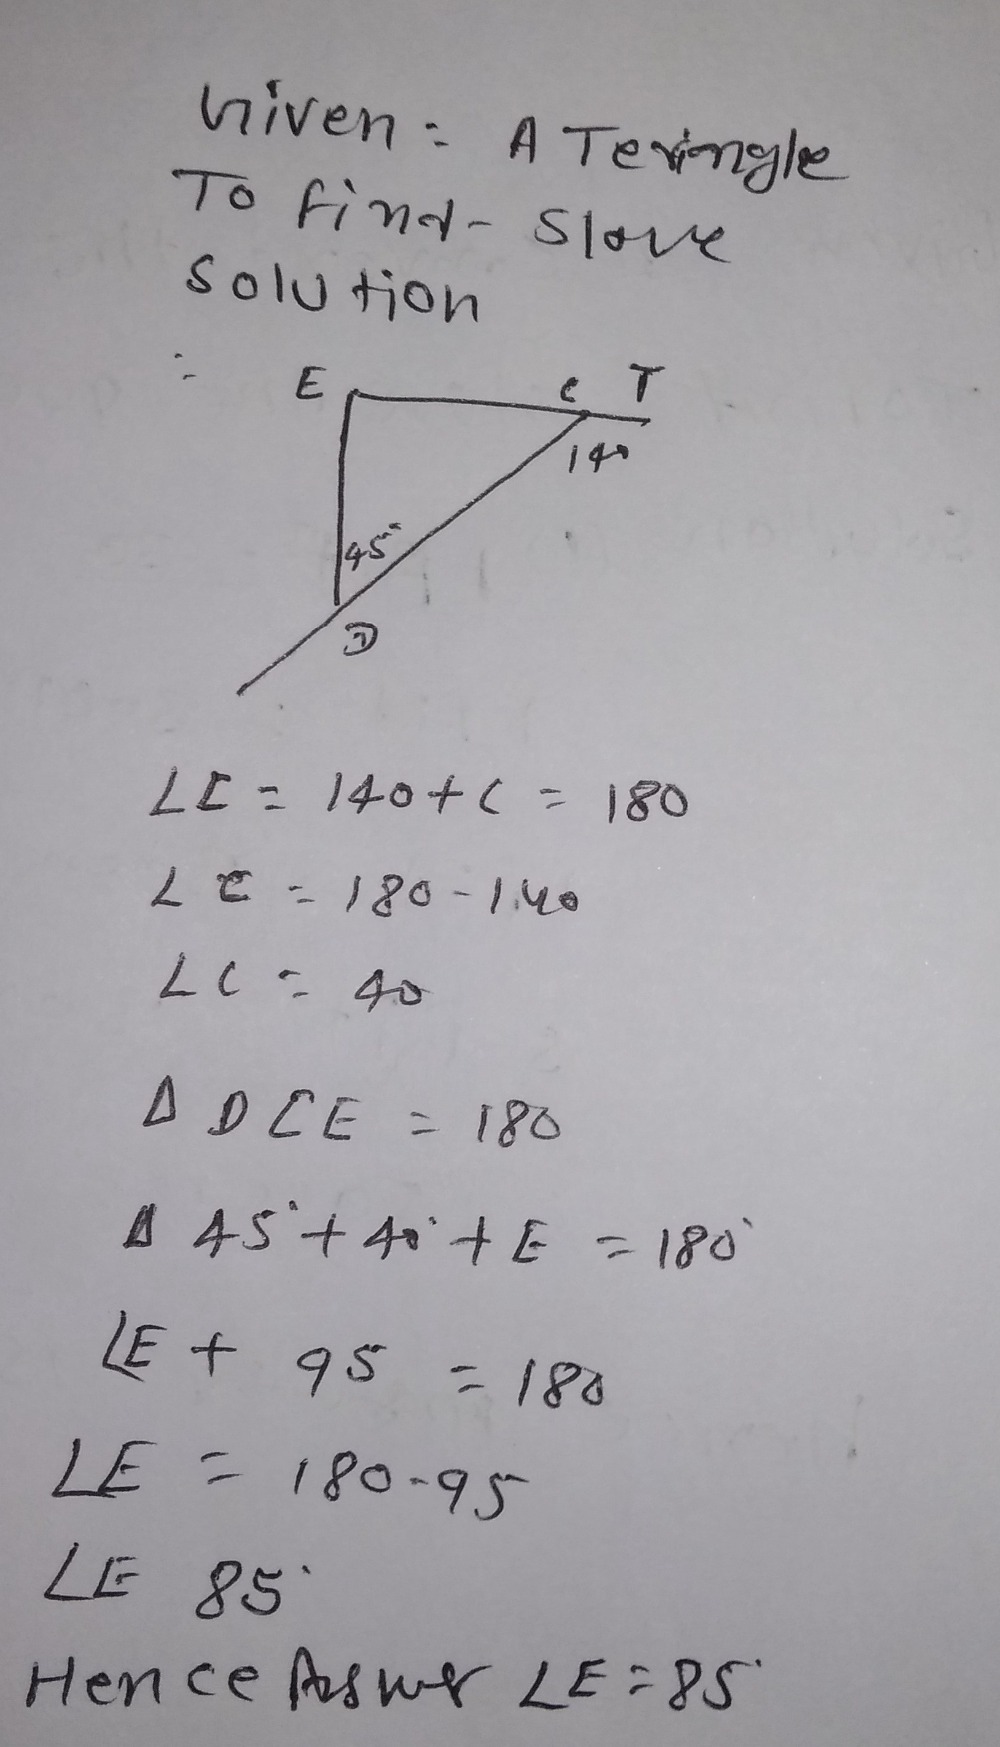 Given = A Teringle
To find - Slove
Solution
E C T
140
45°
D
∠C = 140 + C = 180
∠C = 180 - 140
∠C = 40
Δ DCE = 180
Δ 45° + 40° + E = 180°
∠E + 95 = 180
∠E = 180 - 95
∠E 85°
Hence Answer ∠E = 85°